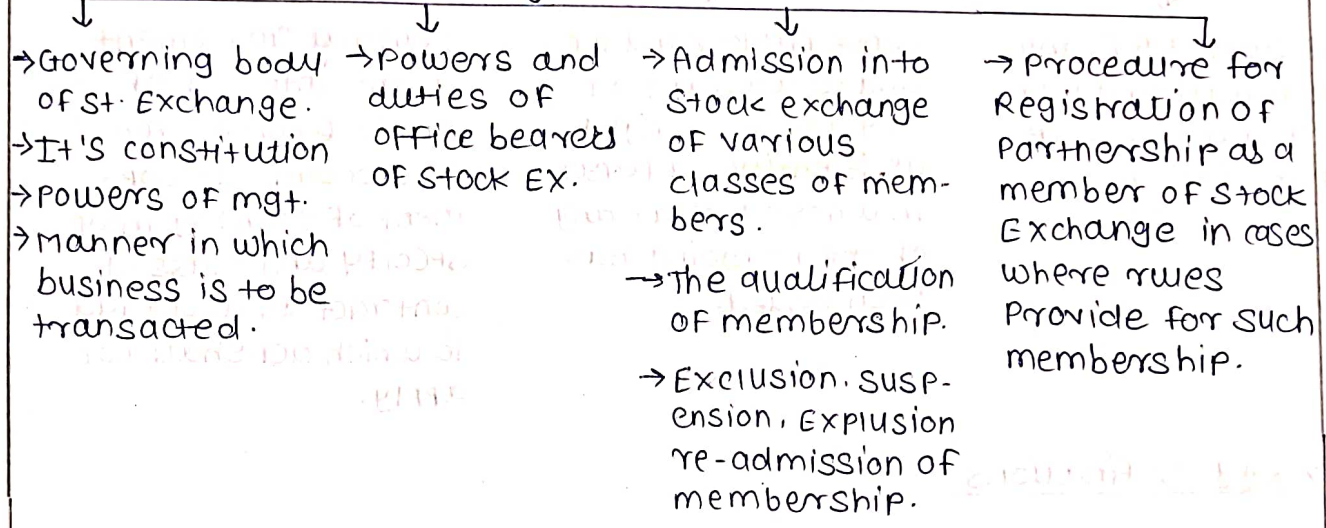 →Governing body
of St. Exchange.
→It's constitution
→Powers of mgt.
→manner in which
business is to be
transacted.
→Powers and
duties of
office bearers
of Stock Ex.
→Admission into
Stock exchange
of various
classes of mem-
bers.
→The qualification
of membership.
→Exclusion, susp-
ension, Explusion
re-admission of
membership.
→ Procedure for
Registration of
Partnership as a
member of Stock
Exchange in cases
where rules
Provide for such
membership.